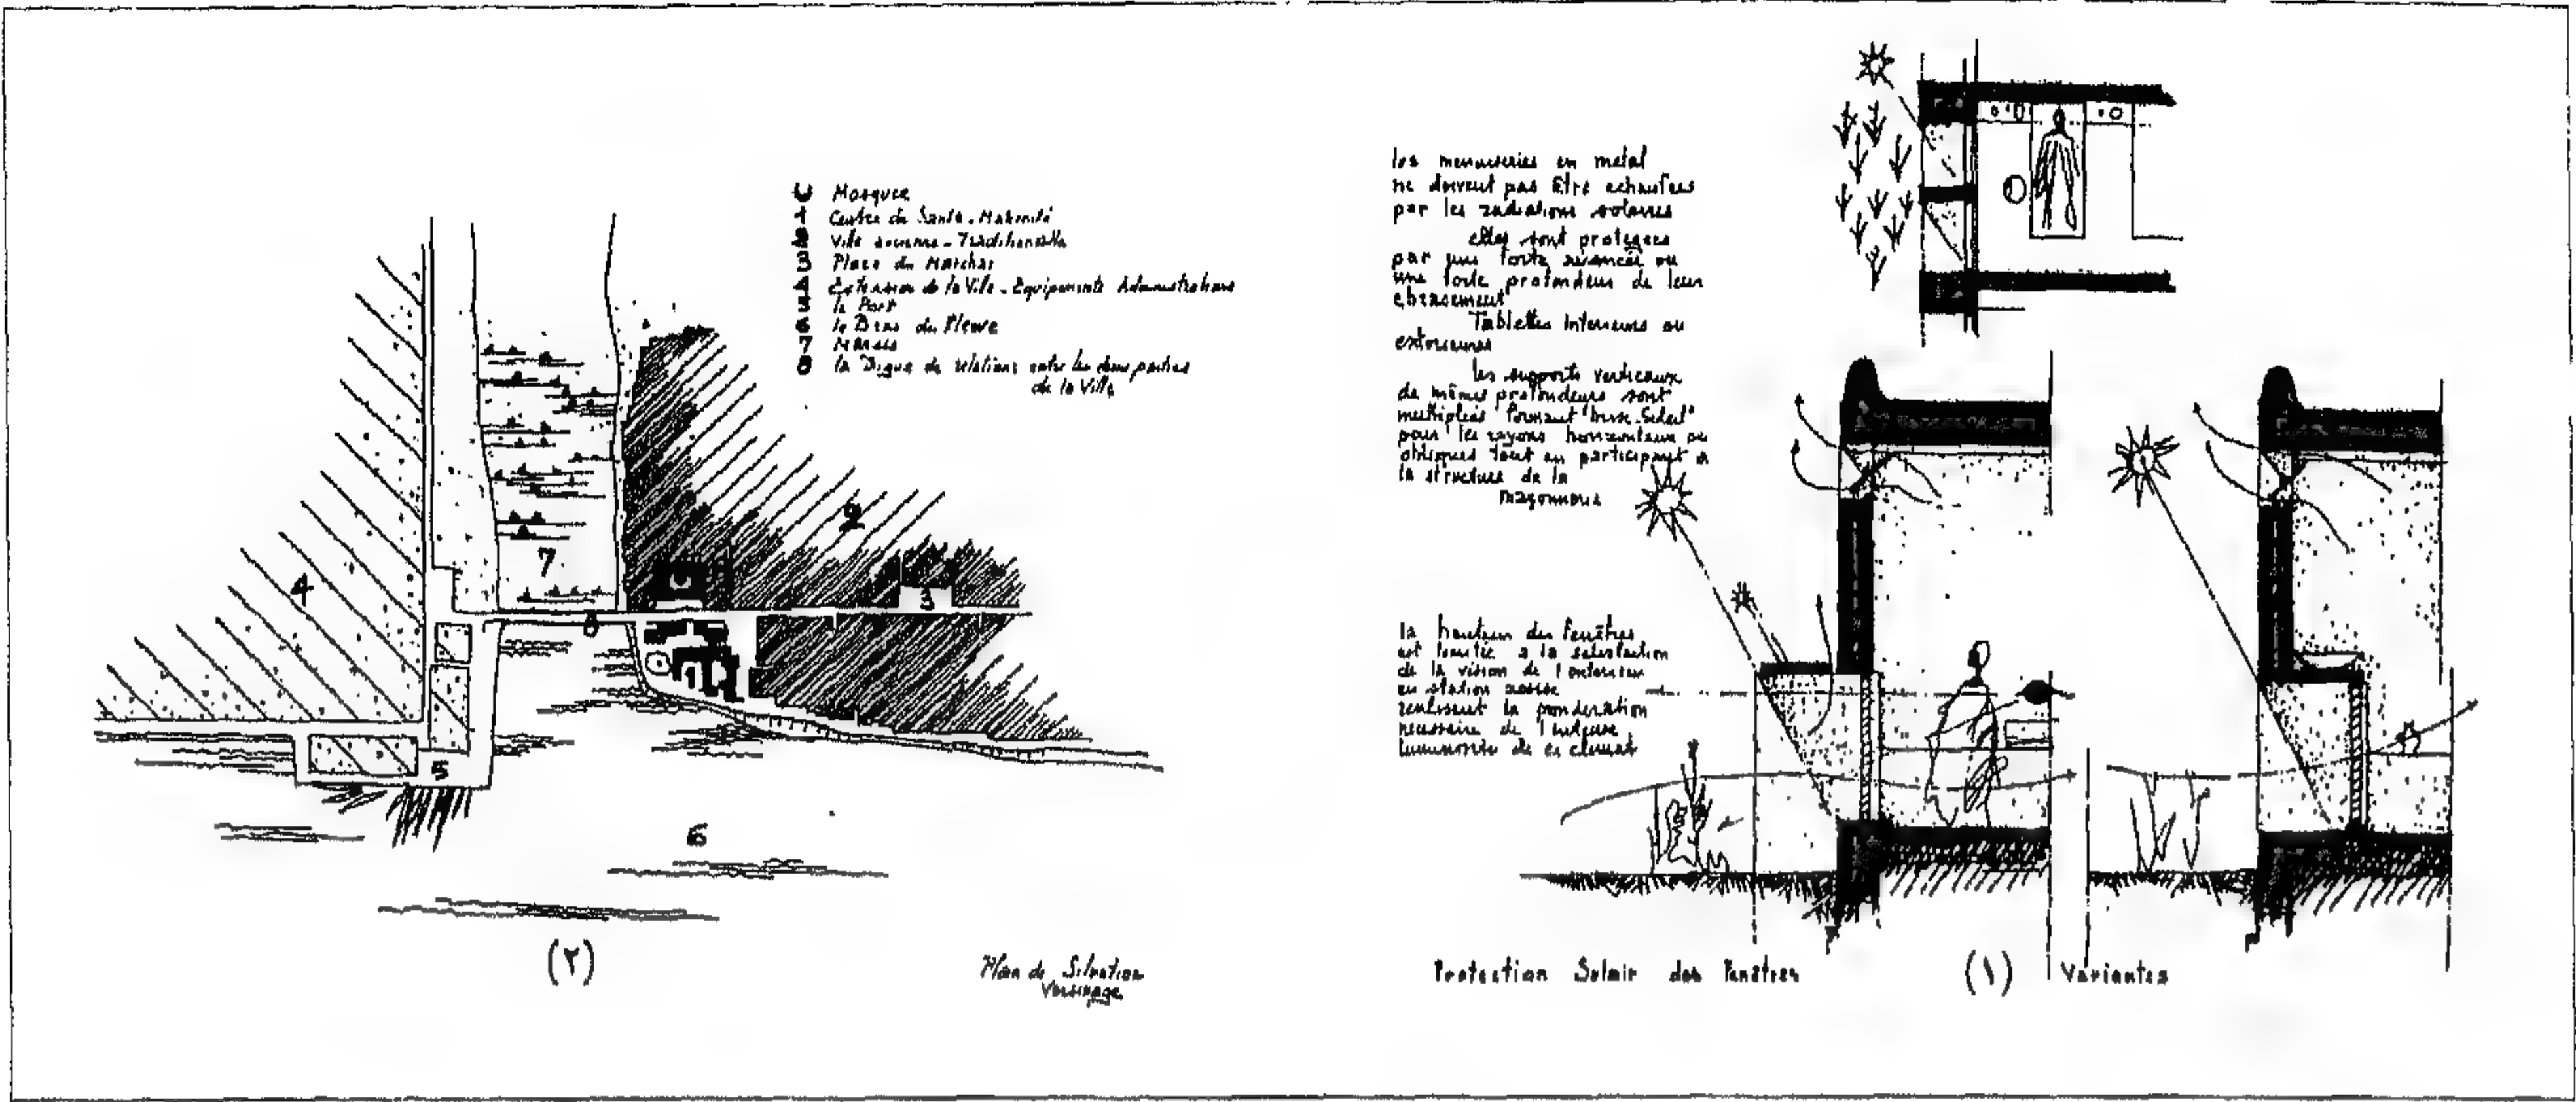 Mosquee
Centre de Santé - Maternité
Ville ancienne - Traditionnelle
3 Place du Marché
Extension de la Ville - Equipements Administrations
le Port
6 le Bras du Fleuve
7 Marais
8 la Digue de relations entre les deux parties
de la Ville
2
4
7
3
8
5
6
(٢)
Plan de Situation
Voisinage
les menuiseries en metal
ne doivent pas être echaufees
par les radiations solaires
elles sont protegees
par une forte avancée ou
une forte profondeur de leur
ebrasement
Tablettes interieures ou
exterieures
les supports verticaux
de mêmes profondeurs sont
multipliés formant "brise-Soleil"
pour les rayons horizontaux ou
obliques tout en participant a
la structure de la
maçonnerie
la hauteur des fenêtres
est limitée a la satisfaction
de la vision de l'exterieur
en station assise
realisant la ponderation
necessaire de l'intense
luminosité de ce climat
Protection Solair des Fenêtres
(١)
Variantes